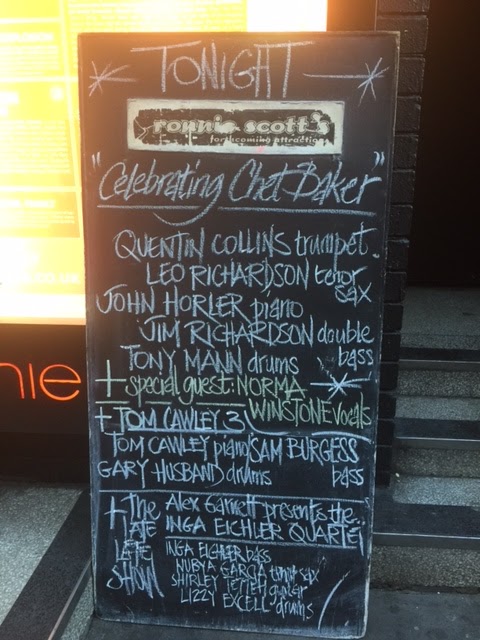 TONIGHT
ronnie scott's
forthcoming attractions
"Celebrating Chet Baker"
QUENTIN COLLINS trumpet
LEO RICHARDSON tenor
sax
JOHN HORLER piano
JIM RICHARDSON double
bass
TONY MANN drums
+ special guest: NORMA
WINSTONE vocals
+ TOM CAWLEY 3
TOM CAWLEY piano SAM BURGESS
bass
GARY HUSBAND drums
+ The LATE LATE SHOW
Alex Garnett presents the...
INGA EICHLER QUARTET
INGA EICHLER bass
NUBYA GARCIA tenor sax
SHIRLEY TETTEH guitar
LIZZY EXCELL drums
nie